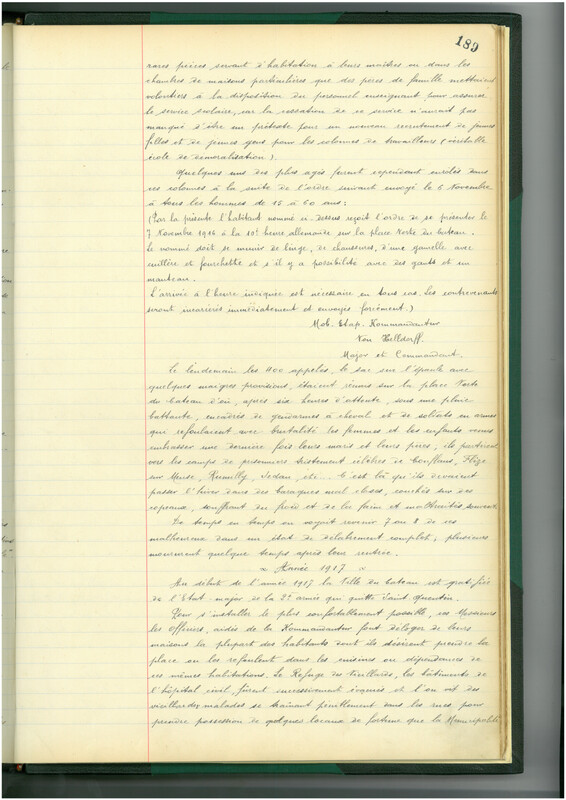 189
rares pièces servant d'habitation à leurs maîtres ou dans les
chambres de maisons particulières que des pères de famille mettaient
volontiers à la disposition du personnel enseignant pour assurer
le service scolaire, car la cessation de ce service n'aurait pas
manqué d'être un prétexte pour un nouveau recrutement de jeunes
filles et de jeunes gens pour les colonnes de travailleurs (véritable
école de démoralisation).
Quelques uns des plus agés furent cependant enrôlés dans
ces colonnes à la suite de l'ordre suivant envoyé le 6 Novembre
à tous les hommes de 15 à 60 ans:
(Par la présente l'habitant nommé ci-dessus reçoit l'ordre de se présenter le
7 Novembre 1916 à la heure allemande sur la place Verte du Cateau.
Le nommé doit se munir de linge, de chaussures, d'une gamelle avec
cuillère et fourchette et s'il y a possibilité avec des gants et un
manteau.
L'arrivée à l'heure indiquée est nécessaire en tous cas, les contrevenants
seront incarcérés immédiatement et envoyés forcément.)
Mob. Etap. Kommandantur
Von Helldorff.
Major et Commandant.
Le lendemain les appelés, le sac sur l'épaule avec
quelques maigres provisions, étaient réunis sur la place Verte
du Cateau d'où, après six heures d'attente, sous une pluie
battante, encadrés de gendarmes à cheval et de soldats en armes
qui refoulaient avec brutalité les femmes et les enfants venus
embrasser une dernière fois leurs maris et leurs pères, ils partirent
vers les camps de prisonniers tristement célèbres de Conflans, Flize
sur Meuse, Rumilly, Sedan, etc... C'est là qu'ils devaient
passer l'hiver dans des baraques mal closes, couchés sur des
copeaux, souffrant du froid et de la faim et maltraités souvent.
De temps en temps on voyait revenir 7 ou 8 de ces
malheureux dans un état de délabrement complet; plusieurs
moururent quelque temps après leur rentrée.
Année 1917
Au début de l'année 1917 la Ville du Cateau est gratifiée
de l'Etat-major de la 2e armée qui quitte Saint Quentin.
Pour s'installer le plus confortablement possible, ces Messieurs
les Officiers, aidés de la Kommandantur font déloger de leurs
maisons la plupart des habitants dont ils désirent prendre la
place en les refoulant dans les cuisines ou dépendances de
ces mêmes habitations. Le Refuge des Vieillards, les bâtiments de
l'hôpital civil, furent successivement évacués et l'on vit des
vieillards malades se traînant péniblement dans les rues pour
prendre possession de quelques locaux de fortune que la Municipalité